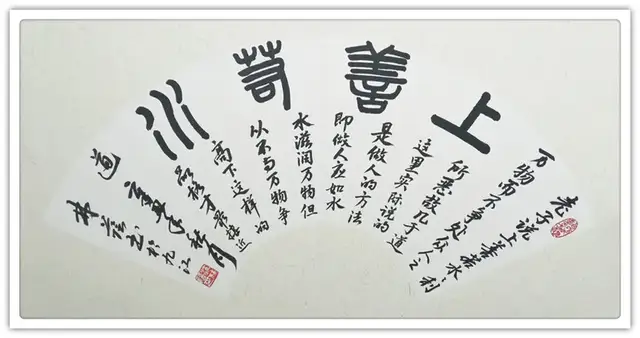 上善若水
老子说上善若水〻利
万物而不争处众人之
所恶故几于道
这里实际说的
是做人的方法
即做人应如水
水滋润万物但
从不与万物争
高下这样的
品格才最接近
道
辛丑年秋月
书于九江